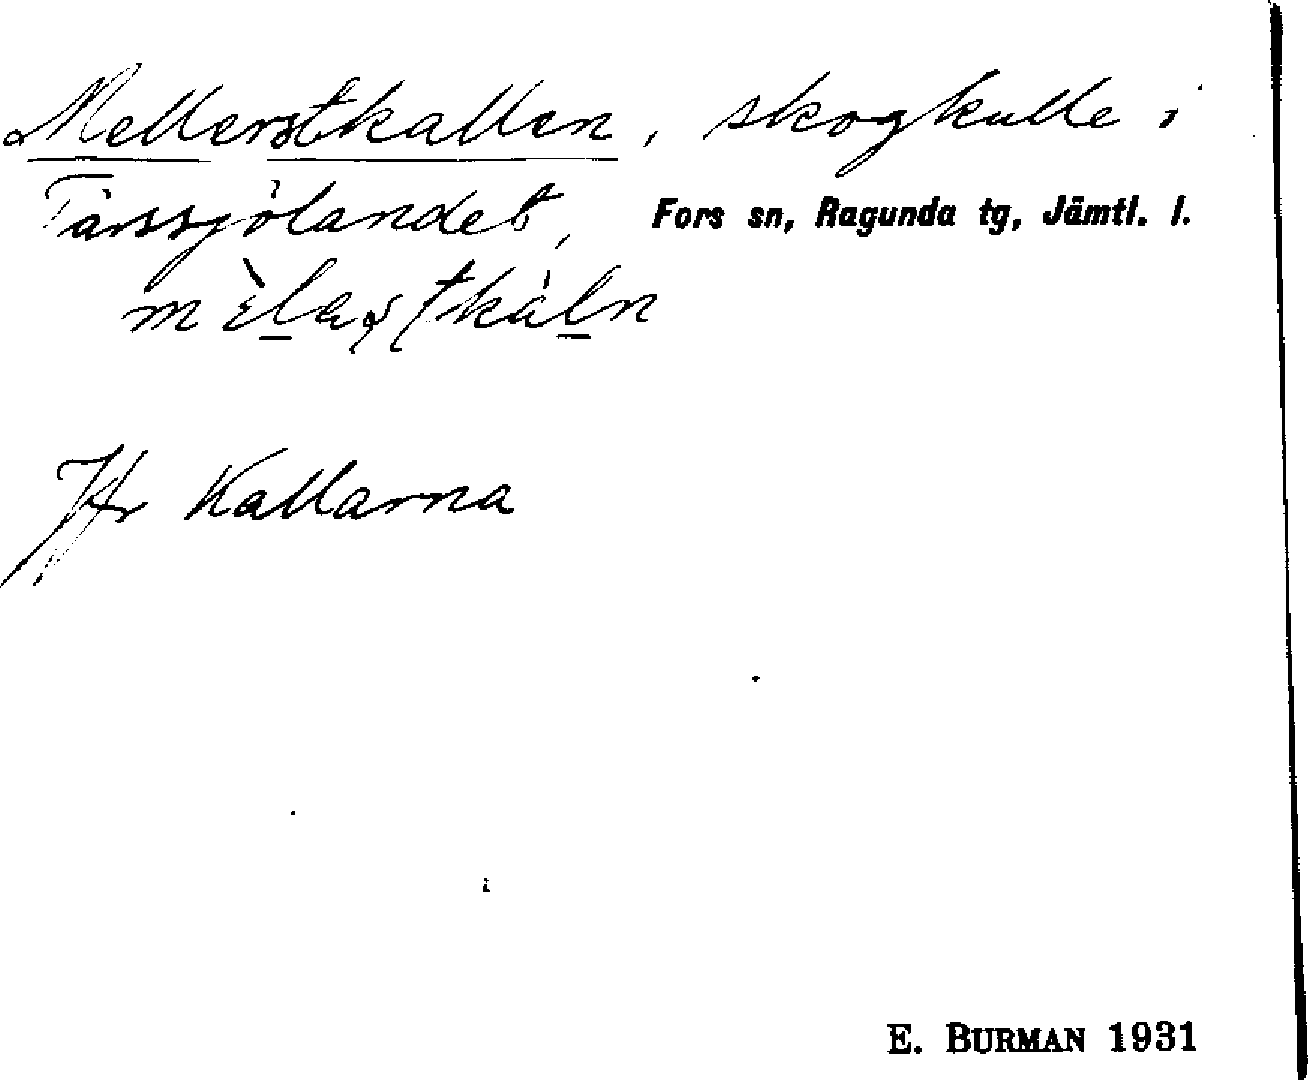 Mellerstkallen, skogkulle i
Tårssjölandet, Fors sn, Ragunda tg, Jämtl. l.
Jfr Kallarna
E. BURMAN 1931